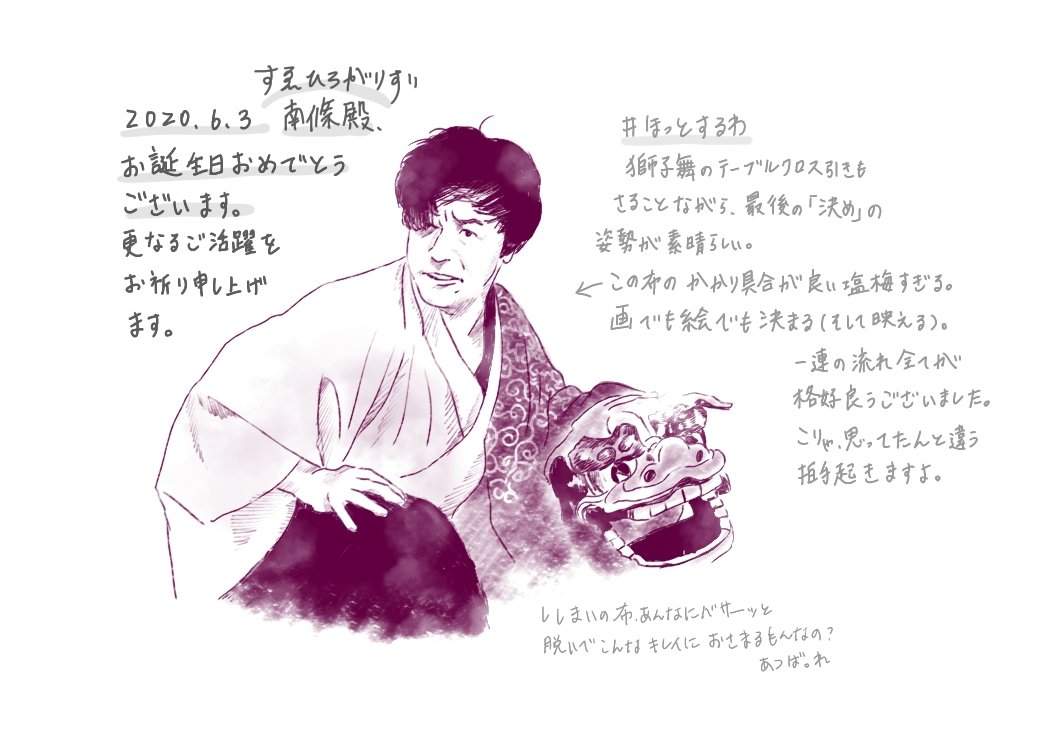 すゑひろがりずリ
2020.6.3 南條殿、
お誕生日おめでとう
ございます。
更なるご活躍を
お祈り申し上げ
ます。
#ほっとするわ
獅子舞のテーブルクロス引きも
さることながら、最後の「決め」の
姿勢が素晴らしい。
←この布のかかり具合が良い塩梅すぎる。
画でも絵でも決まる(そして映える)。
一連の流れ全てが
格好良うございました。
こりゃ、思ってたんと違う
拍手起きますよ。
ししまいの布、あんなにバサーッと
脱いでこんなキレイにおさまるもんなの?
あっぱ。れ